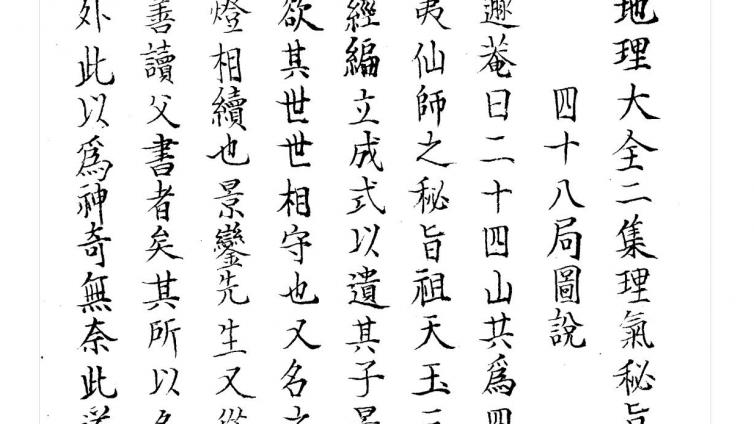 地理大全二集理氣秘旨
四十八局圖說
趣菴曰二十四山共爲四
夷仙師之秘旨祖天玉
經編立成式以遺其子景
欲其世世相守也又名
燈相續也景鸞先生又
善讀父書者矣其所以名
外此以爲神奇無奈此